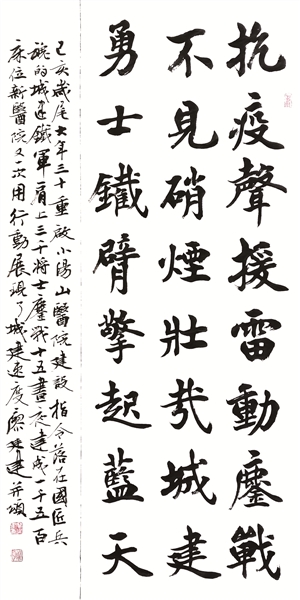 抗疫聲援雷動鏖戰
不見硝煙壯哉城建
勇士鐵臂擎起藍天
己亥歲尾大年三十重啟小湯山醫院建設指令落在國匠兵
魂的城建鐵軍肩上三千將士鏖戰十五晝夜建成一千五百
床位新醫院又一次用行動展現了城建速度廖建并頌